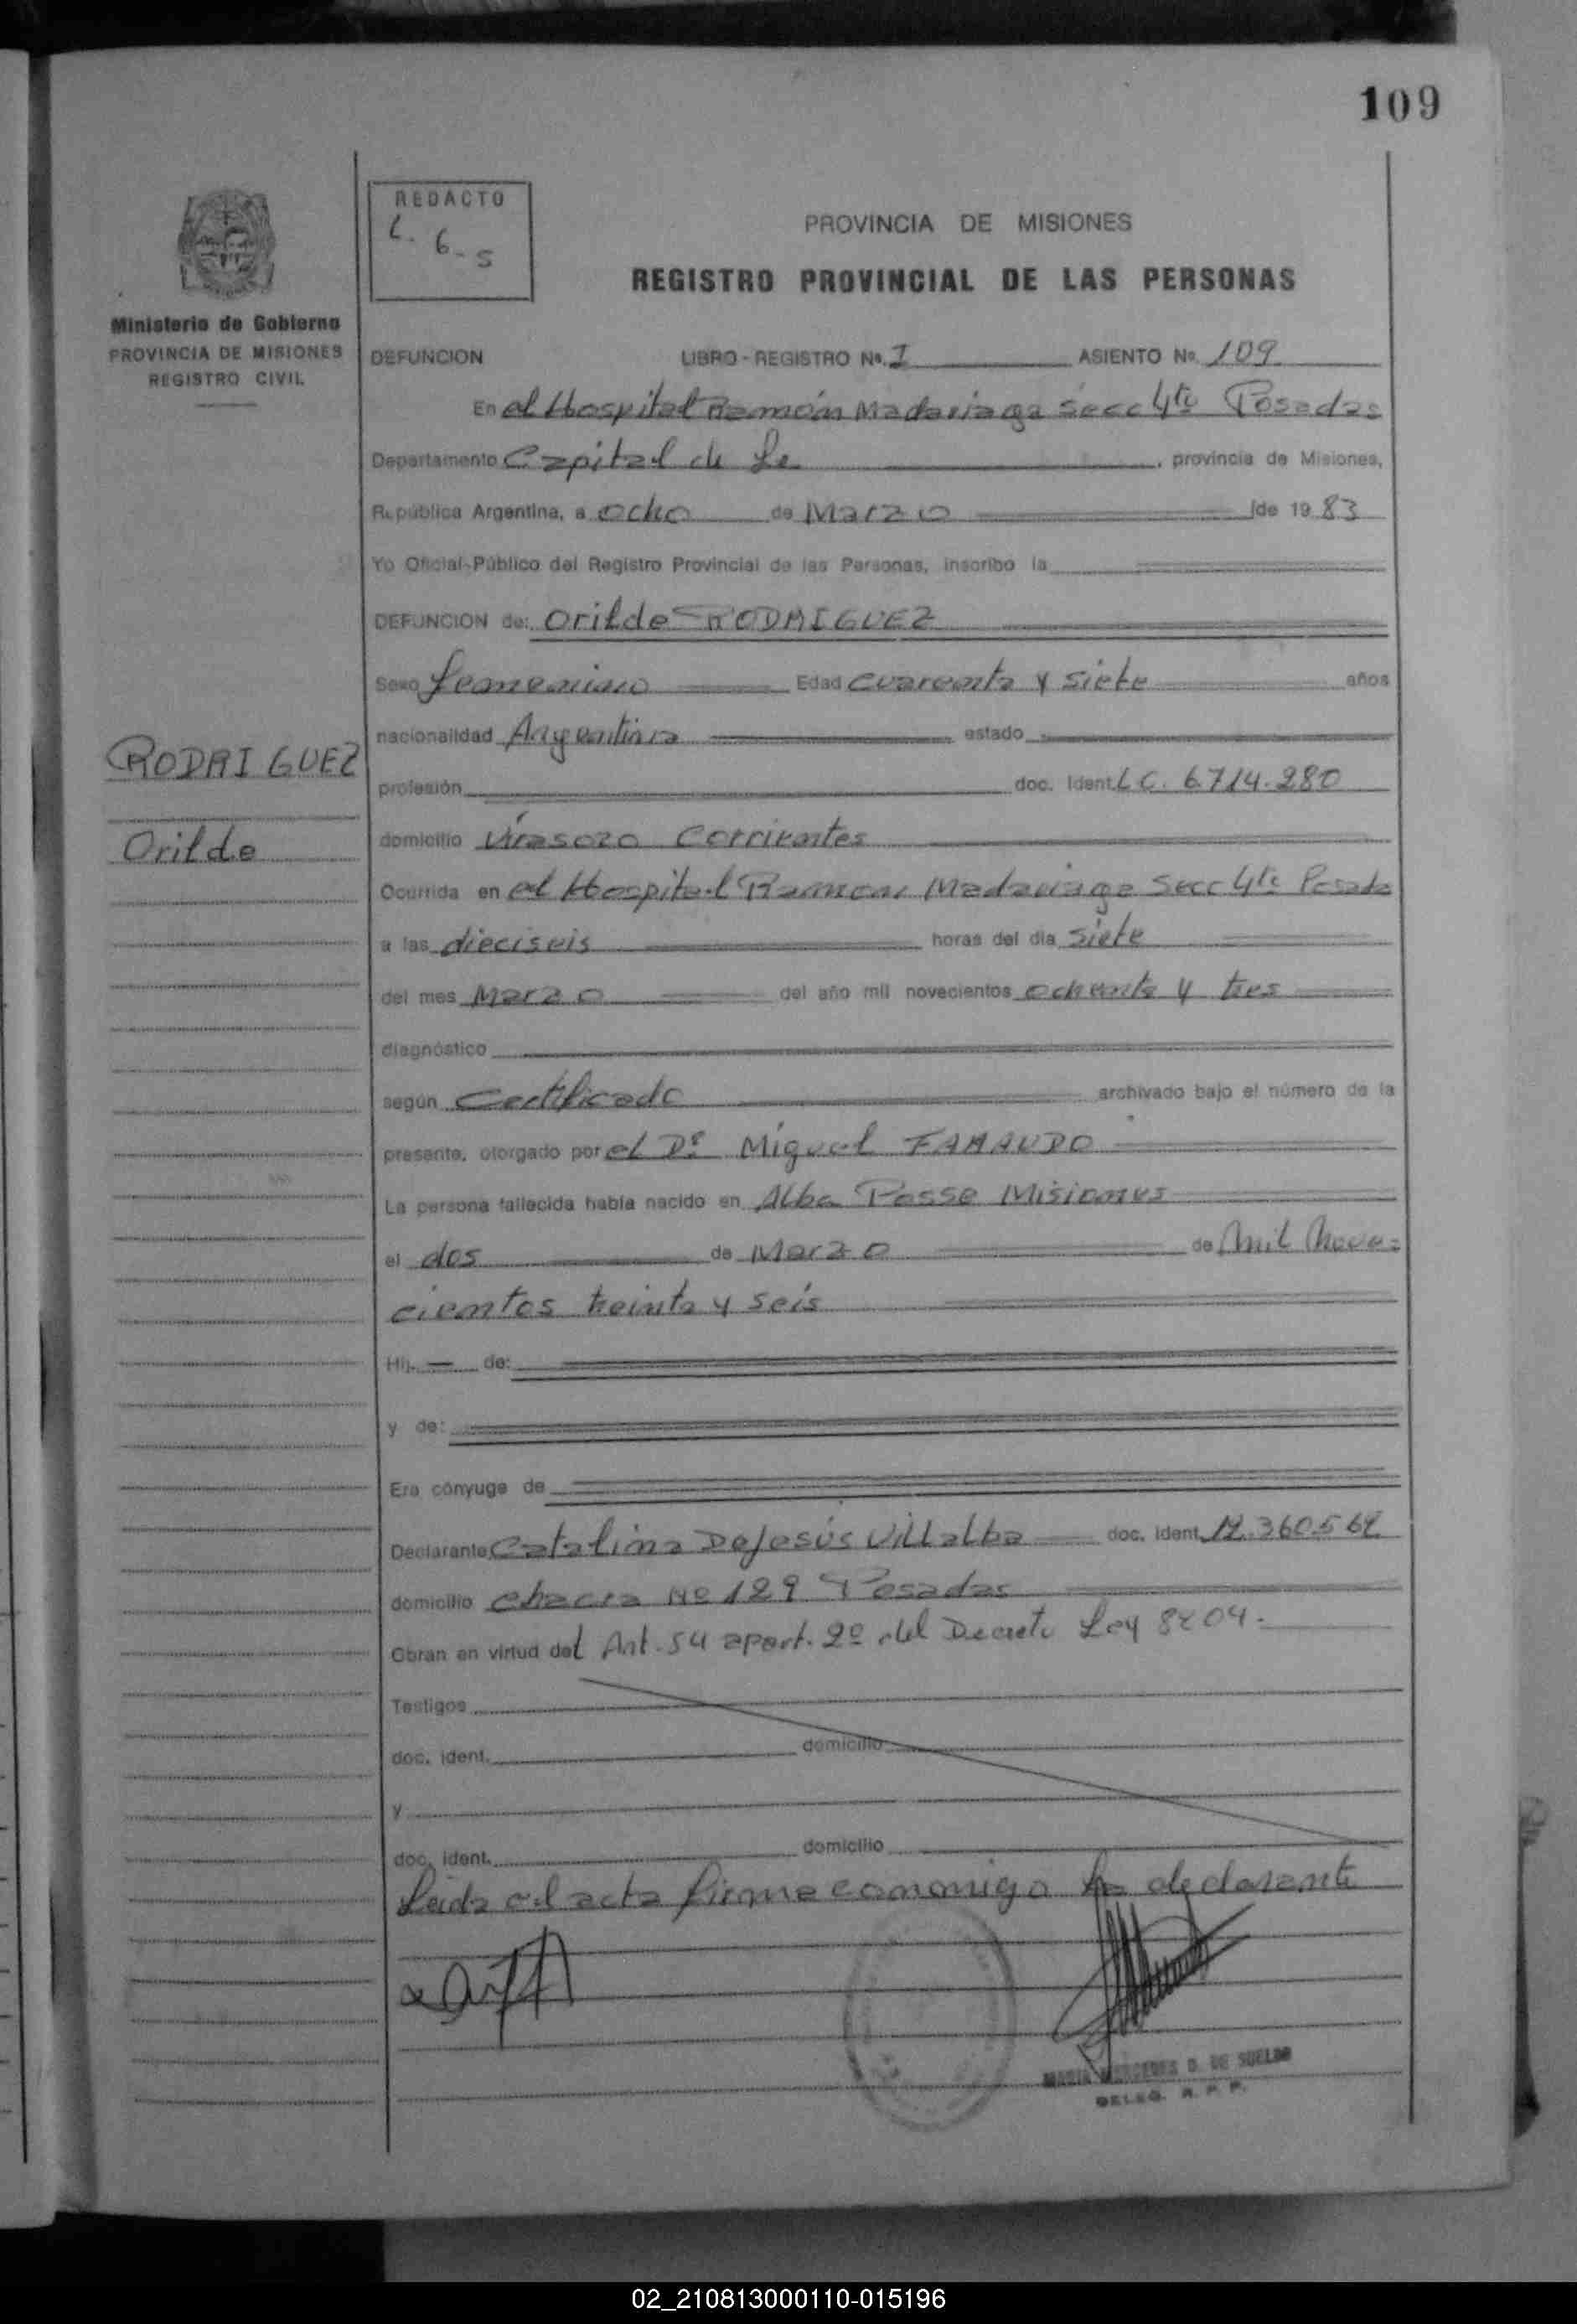 109
REDACTO
L. 6-5
PROVINCIA DE MISIONES
REGISTRO PROVINCIAL DE LAS PERSONAS
Ministerio de Gobierno
PROVINCIA DE MISIONES
REGISTRO CIVIL
DEFUNCION LIBRO - REGISTRO No. I ASIENTO No. 109
En el Hospital Ramón Madariaga Secc 4ta Posadas
Departamento Capital de La , provincia de Misiones,
República Argentina, a ocho de Marzo de 1983
Yo Oficial Público del Registro Provincial de las Personas, inscribo la
DEFUNCION de: Orilde RODRIGUEZ
Sexo Femenino Edad cuarenta y siete años
nacionalidad Argentina estado
RODRIGUEZ
profesión doc. Ident. LC. 6.714.280
Orilde
domicilio Virasoro Corrientes
Ocurrida en el Hospital Ramon Madariaga Secc 4ta Posada
a las dieciseis horas del día siete
del mes Marzo del año mil novecientos ochenta y tres
diagnóstico
según Certificado archivado bajo el número de la
presente, otorgado por el Dr Miguel
La persona fallecida había nacido en Alba Posse Misiones
el dos de Marzo de Mil Nove=
cientos treinta y seis
Hij. — de:
y de:
Era cónyuge de
Declarante Catalina DeJesús Villalba doc. ident.
domicilio chacra No 129 Posadas
Obran en virtud del Art. 54 apart. 2º del Decreto Ley 8204.
Testigos
doc. ident. domicilio
y
doc. ident. domicilio
Leida el acta firma conmigo la declarante
MARIA MERCEDES D. DE SUELDO
DELEG. R. P. P.
02_210813000110-015196